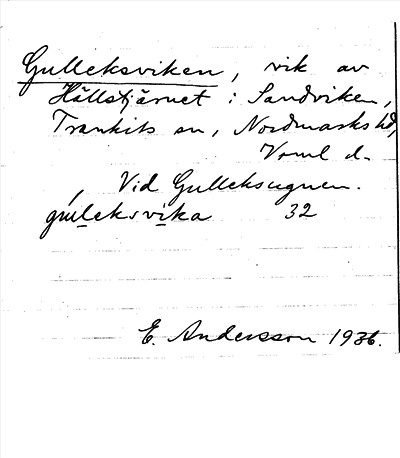 Gulleksviken, vik av
Hällstjärnet i Sandviken,
Trankils sn, Nordmarks hd,
Vrml d.
Vid Gulleksugnen.
gulleksvika 32
E. Andersson 1936.